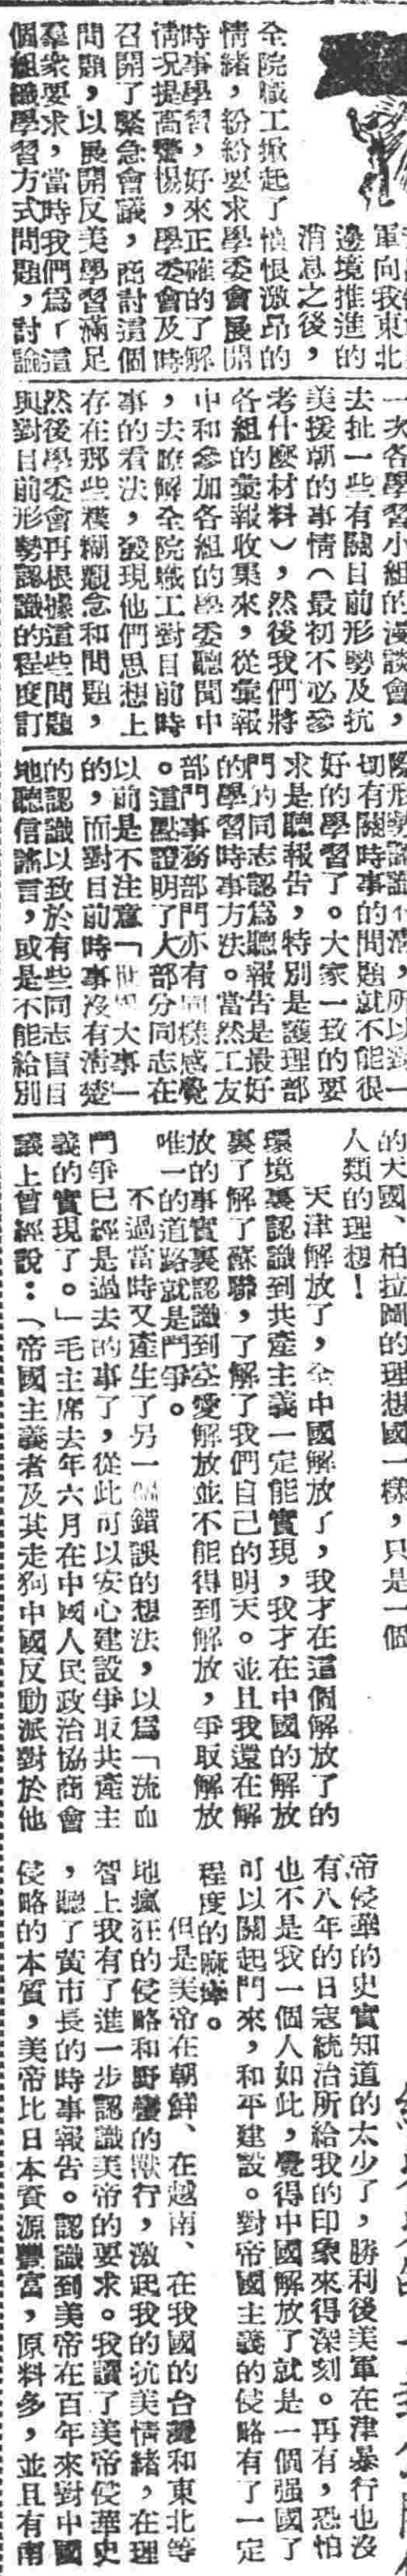 軍向我東北
邊境推進的
消息之後，
全院職工掀起了憤恨激昂的
情緒，紛紛要求學委會展開
時事學習，好來正確的了解
情況提高警惕，學委會及時
召開了緊急會議，商討這個
問題，以展開反美學習滿足
羣衆要求，當時我們爲了這
個組織學習方式問題，討論
一次各學習小組的漫談會，
去扯一些有關目前形勢及抗
美援朝的事情（最初不必參
考什麼材料），然後我們將
各組的彙報收集來，從彙報
中和參加各組的學委聽聞中
，去瞭解全院職工對目前時
事的看法，發現他們思想上
存在那些模糊觀念和問題，
然後學委會再根據這些問題
與對目前形勢認識的程度訂
際形勢認識不清，所以對一
切有關時事的問題就不能很
好的學習了。大家一致的要
求是聽報告，特別是護理部
門的同志認爲聽報告是最好
的學習時事方法。當然工友
部門事務部門亦有同樣感覺
。這點證明了大部分同志在
以前是不注意「世界大事」
的，而對目前時事沒有清楚
的認識以致於有些同志盲目
地聽信謠言，或是不能給別
的天國、柏拉圖的理想國一樣，只是一個
人類的理想！
天津解放了，全中國解放了，我才在這個解放了的
環境裏認識到共產主義一定能實現，我才在中國的解放
裏了解了蘇聯，了解了我們自己的明天。並且我還在解
放的事實裏認識到空愛解放並不能得到解放，爭取解放
唯一的道路就是鬥爭。
不過當時又產生了另一個錯誤的想法，以爲「流血
鬥爭已經是過去的事了，從此可以安心建設爭取共產主
義的實現了。」毛主席去年六月在中國人民政治協商會
議上曾經說：「帝國主義者及其走狗中國反動派對於他
帝侵華的史實知道的太少了，勝利後美軍在津暴行也沒
有八年的日寇統治所給我的印象來得深刻。再有，恐怕
也不是我一個人如此，覺得中國解放了就是一個强國了
可以關起門來，和平建設。對帝國主義的侵略有了一定
程度的麻痺。
但是美帝在朝鮮、在越南、在我國的台灣和東北等
地瘋狂的侵略和野蠻的獸行，激起我的抗美情緒，在理
智上我有了進一步認識美帝的要求。我讀了美帝侵華史
，聽了黃市長的時事報告。認識到美帝在百年來對中國
侵略的本質，美帝比日本資源豐富，原料多，並且有南